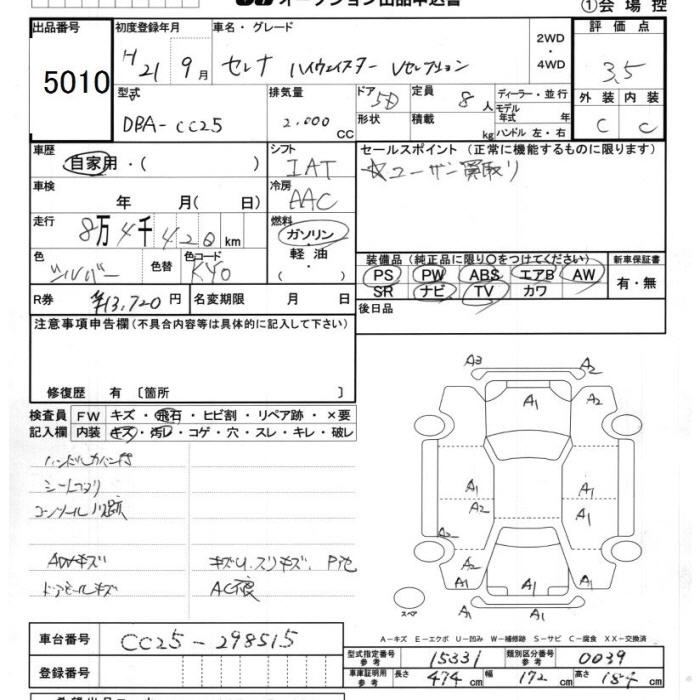 オークション出品申込書
①会場控
出品番号
5010
初度登録年月
H21 9月
車名・グレード
セレナ ハイウェイスター Vセレクション
2WD
・
4WD
評価点
3.5
外装 内装
C C
型式
DBA-CC25
排気量
2,000 CC
ドア 5D
形状
定員 8人
積載 kg
ディーラー・並行
モデル年式 年
ハンドル 左・右
車歴
自家用・( )
シフト
IAT
車検
年 月( 日)
冷房
AAC
走行
8万4千420km
燃料
ガソリン
・
軽油
・
( )
色
シルバー
色替
色コード
KY0
R券 ¥13,720円
名変期限 月 日
セールスポイント(正常に機能するものに限ります)
☆ユーザー買取り
装備品(純正品に限り○をつけてください)
PS PW ABS エアB AW
SR ナビ TV カワ
新車保証書
有・無
後日品
注意事項申告欄(不具合内容等は具体的に記入して下さい)
修復歴 有〔箇所 〕
検査員記入欄
FW キズ・飛石・ヒビ割・リペア跡・×要
内装 キズ・汚レ・コゲ・穴・スレ・キレ・破レ
ハンドルカバー付
コンソール
キズU.スリキズ、
AC不良
A3 A2
A1 A2
A1 A1
A2 A1
A2
A2 A2
A1 A1 A1
スペ
A-キズ E-エクボ U-凹み W-補修跡 S-サビ C-腐食 XX-交換済
車台番号 CC25-298515
登録番号
型式指定番号 参考 15331
類別区分番号 参考 0039
車庫証明用 参考 長さ 474cm 幅 172cm 高さ 184cm